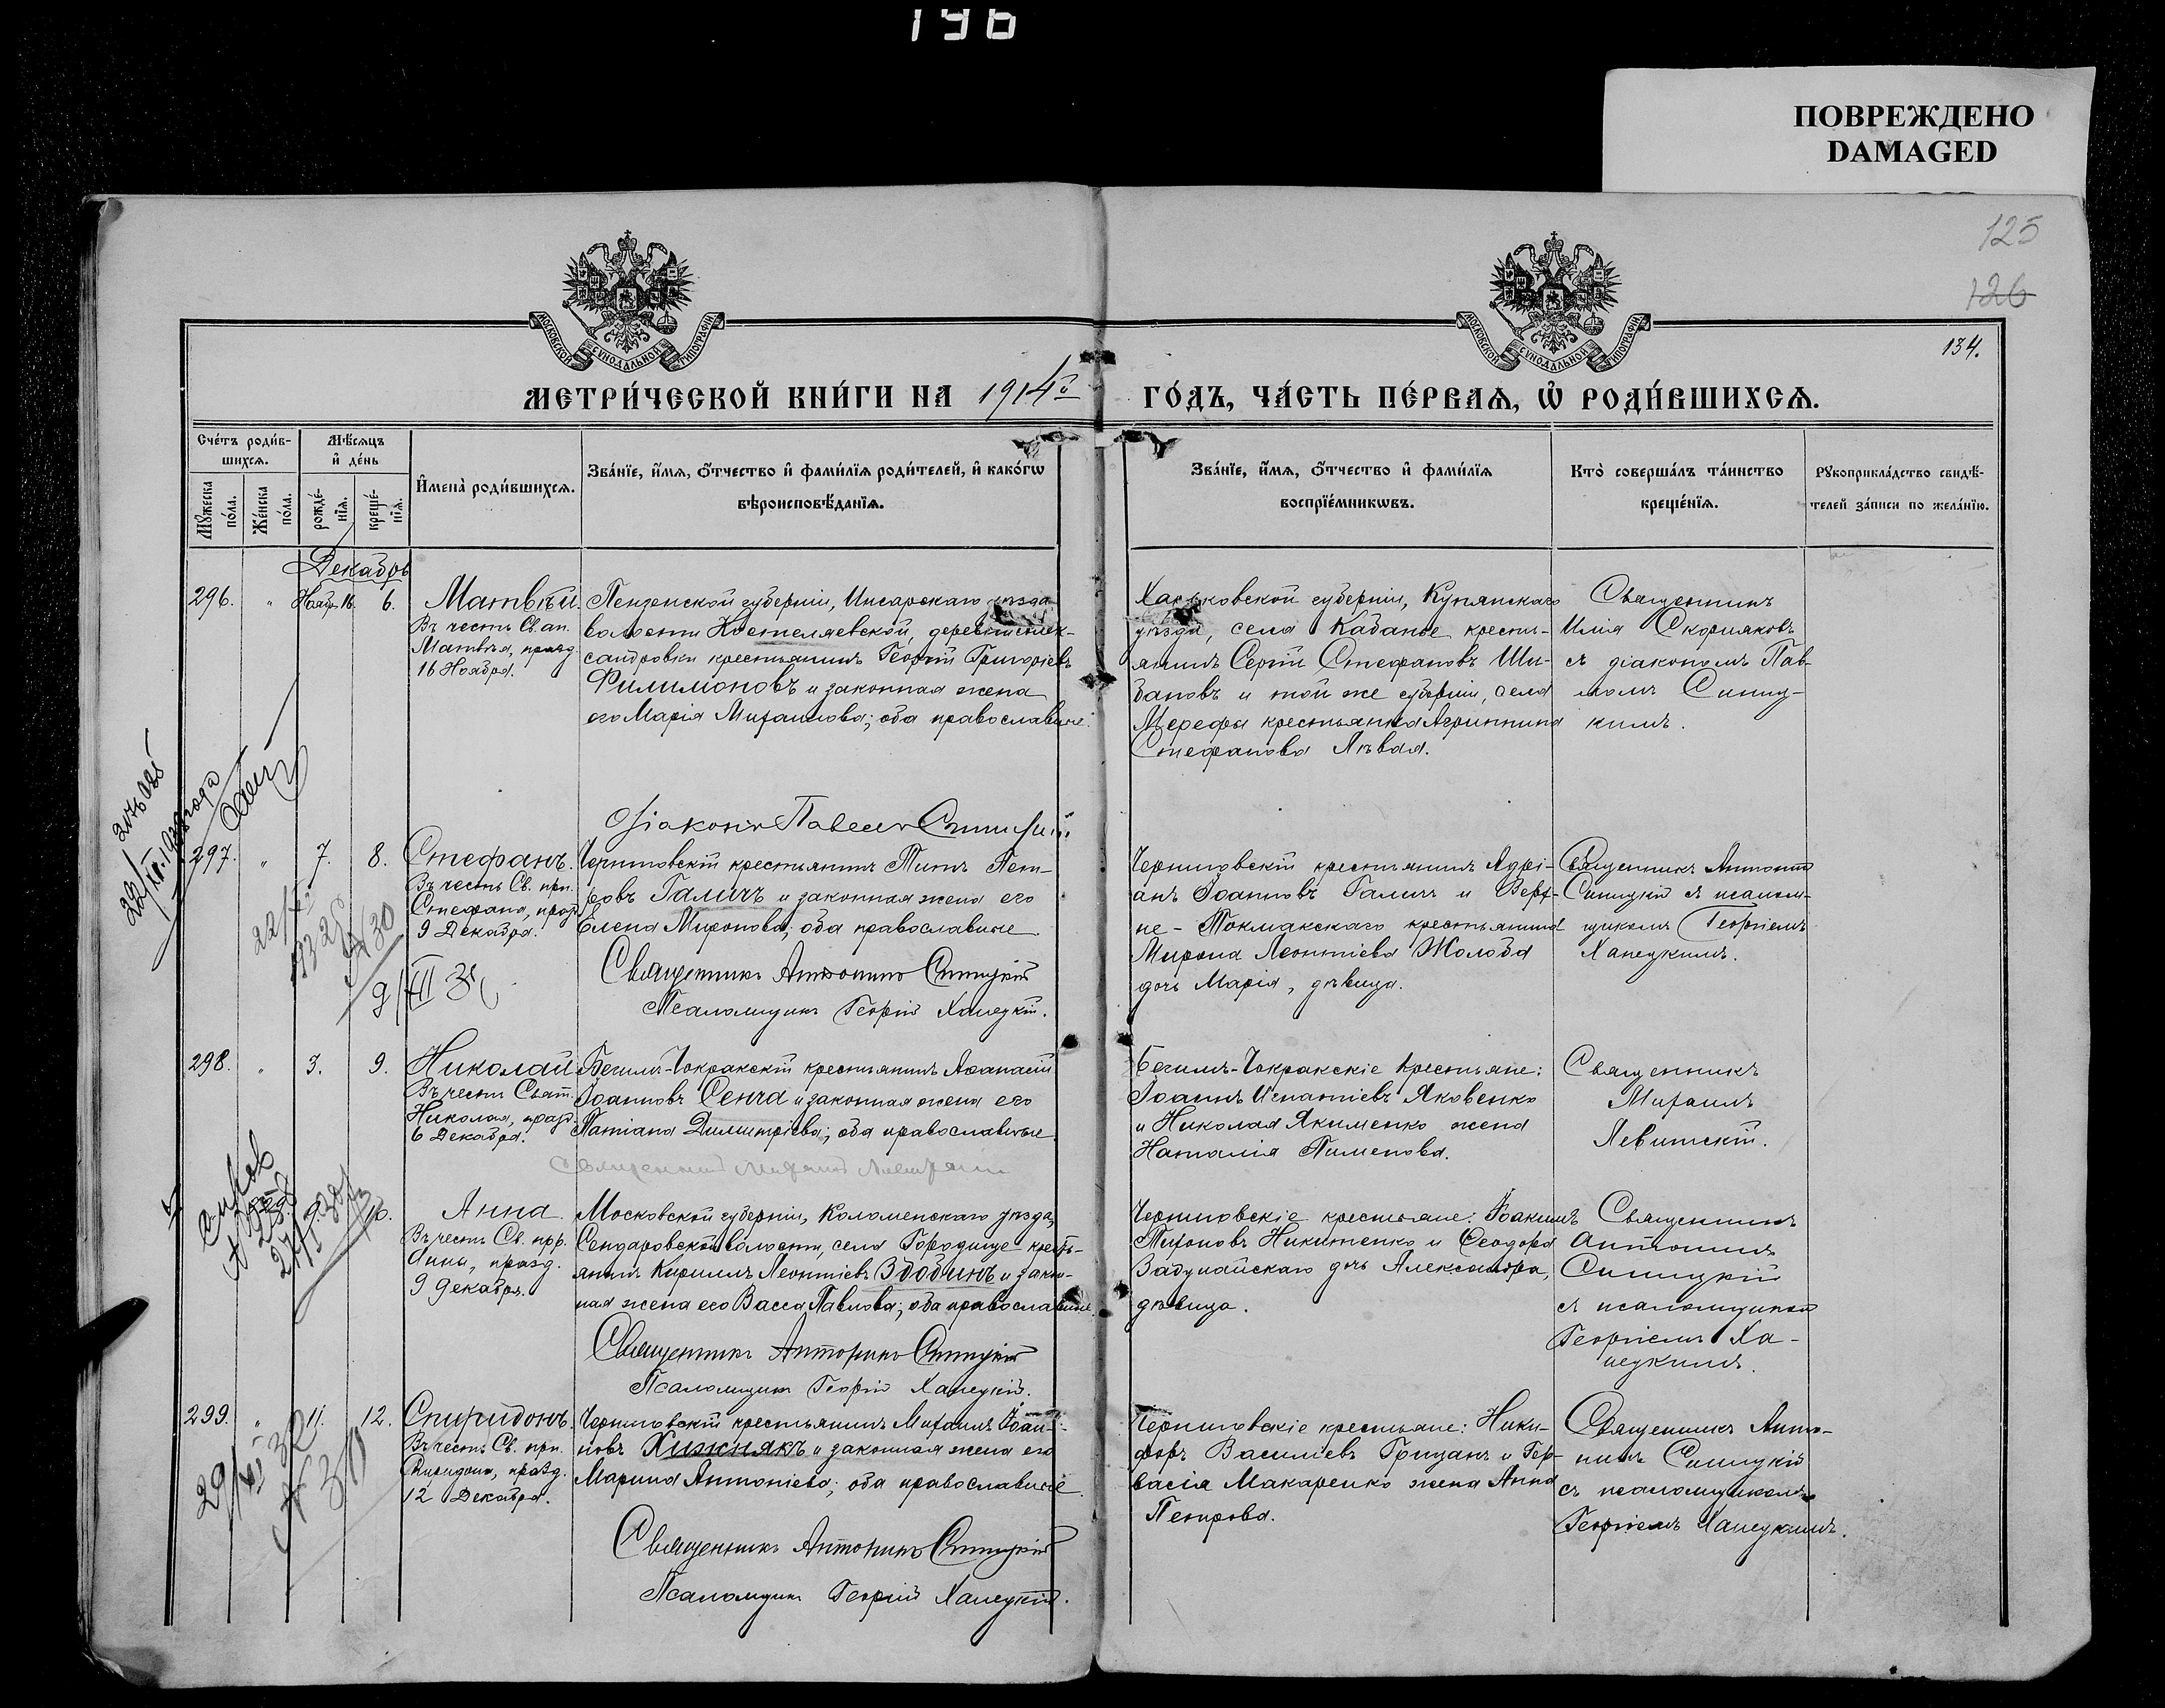 196
ПОВРЕЖДЕНО
DAMAGED
125
126
134.
МОСКОВСКОЙ СУНОДАЛЬНОЙ ТИПОГРАФІИ
МОСКОВСКОЙ СУНОДАЛЬНОЙ ТИПОГРАФІИ
МЕТРИ́ЧЕСКОЙ КНИ́ГИ НА 1914й ГО́ДЪ, ЧА́СТЬ ПЕ́РВАѦ, Ѡ҆ РОДИ́ВШИХСѦ.
Сче́тъ роди́в-
шихсѧ.
Мѣ́сѧцъ
и҆ де́нь
Мꙋ́жеска
по́ла.
Же́нска
по́ла.
рожде́-
нїѧ.
креще́-
нїѧ.
И҆мена̀ роди́вшихсѧ.
Зва́нїе, и҆́мѧ, ѻ҆́тчество и҆ фами́лїѧ роди́телей, и҆ како́гѡ
вѣроисповѣ́данїѧ.
Зва́нїе, и҆́мѧ, ѻ҆́тчество и҆ фами́лїѧ
воспрїе́мникѡвъ.
Кто̀ соверша́лъ та́инство
креще́нїѧ.
Рꙋкоприкла́дство свидѣ́-
телей за́писи по жела́нїю.
Декабрь
296. " Ноябр. 16. 6.
Матвѣй.
Въ честь Св. ап.
Матвѣя, празд.
16 Ноября.
Пензенской губерніи, Инсарскаго уѣзда
волости Костеляевской, деревни Алек-
сандровки крестьянинъ Георгій Григоріевъ
Филимоновъ и законная жена
его Марія Михаилова; оба православные.
Харьковской губерніи, Купянскаго
уѣзда, села Кабанье крестья-
янинъ Сергій Стефановъ Ши-
бановъ и той же губерніи, села
Мерефы крестьянка Агриппина
Стефанова Лѣвая.
Священникъ
Илія Скорняковъ
съ діакономъ Пав-
ломъ Синиц-
кимъ.
Діаконъ Павелъ Синицкій
297. " 7. 8.
Стефанъ.
Въ честь Св. прп.
Стефана, празд.
9 Декабря.
Черниговскій крестьянинъ Титъ Пет-
ровъ Галичъ и законная жена его
Елена Миронова; оба православные.
Священникъ Антонинъ Синицкій
Псаломщикъ Георгій Ханецкій.
Черниговскій крестьянинъ Адрі-
анъ Іоанновъ Галичъ и Верх-
не-Токмакскаго крестьянина
Мирона Леонтіева Жолоба
дочь Марія, дѣвица.
Священникъ Антонинъ
Синицкій съ псалом-
щикомъ Георгіемъ
Ханецкимъ.
298. " 3. 9.
Николай
Въ честь Свят.
Николая, празд.
6 Декабря.
Бегимъ-Чокракскій крестьянинъ Аѳанасій
Іоанновъ Сенча и законная жена его
Татіана Димитріева; оба православные.
Священникъ Михаилъ Левитскій
Бегимъ-Чокракскіе крестьяне:
Іоаннъ Игнатіевъ Яковенко
и Николая Якименко жена
Наталія Пименова.
Священникъ
Михаилъ
Левитскій.
9. 10.
Анна.
Въ честь Св. прр.
Анны, празд.
9 декабря.
Московской губерніи, Коломенскаго уѣзда,
Сендаровской волости, села Городище кресть-
янинъ Кириллъ Леонтіевъ Здобинъ и закон-
ная жена его Васса Павлова; оба православные.
Священникъ Антонинъ Синицкій
Псаломщикъ Георгій Ханецкій.
Черниговскіе крестьяне: Іоакимъ
Тихоновъ Никитенко и Ѳеодора
Задунайскаго дочь Александра,
дѣвица.
Священникъ
Антонинъ
Синицкій
съ псаломщикомъ
Георгіемъ Ха-
нецкимъ.
299. " 11. 12.
Спиридонъ.
Въ честь Св. прп.
Спиридона, празд.
12 Декабря.
Черниговскій крестьянинъ Михаилъ Іоан-
новъ Хижнякъ и законная жена его
Марина Антоніева; оба православные.
Священникъ Антонинъ Синицкій
Псаломщикъ Георгій Ханецкій.
Черниговскіе крестьяне: Ники-
форъ Василіевъ Гризанъ и Гер-
васія Макаренко жена Анна
Петрова.
Священникъ Анто-
нинъ Синицкій
съ псаломщикомъ
Георгіемъ Ханецкимъ.